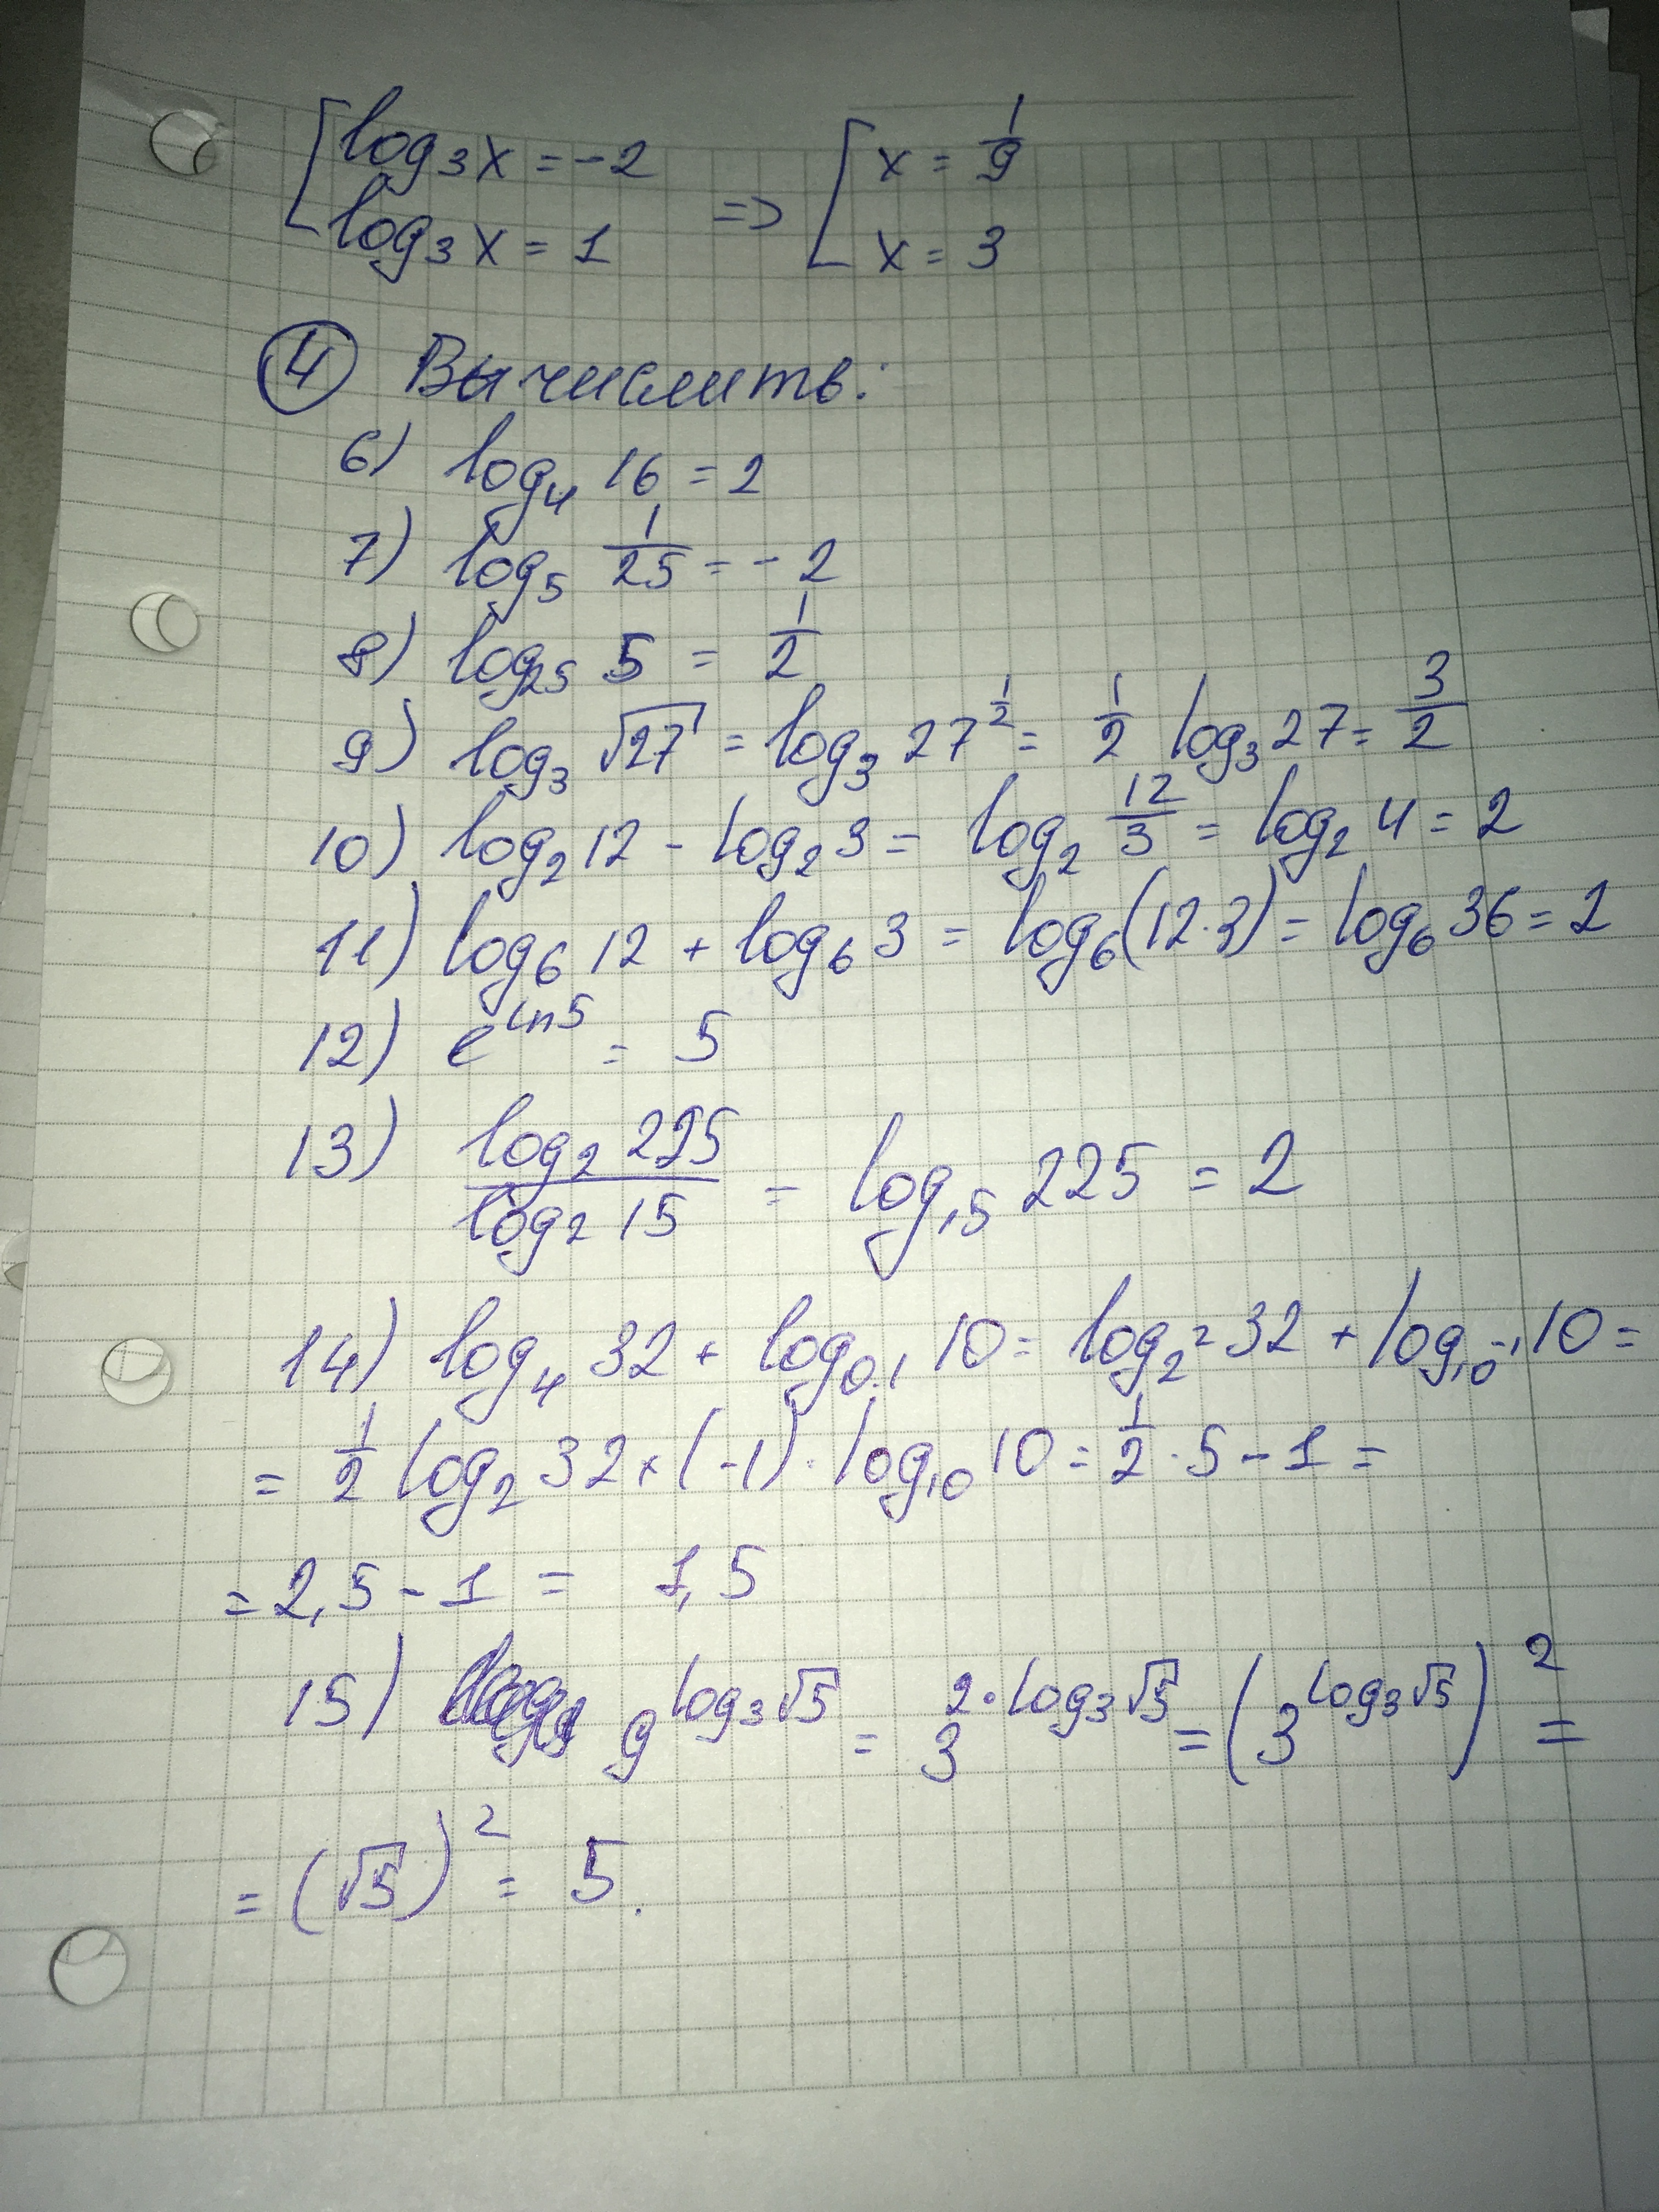 [log₃x = -2 => [x = 1/9
[log₃x = 1 [x = 3
④ Вычислить:
6) log₄ 16 = 2
7) log₅ 1/25 = -2
8) log₂₅ 5 = 1/2
9) log₃ √27 = log₃ 27^(1/2) = 1/2 log₃ 27 = 3/2
10) log₂ 12 - log₂ 3 = log₂ 12/3 = log₂ 4 = 2
11) log₆ 12 + log₆ 3 = log₆(12·3) = log₆ 36 = 2
12) e^(ln5) = 5
13) log₂ 225 / log₂ 15 = log₁₅ 225 = 2
14) log₄ 32 + log₀.₁ 10 = log_(2²) 32 + log_(10⁻¹) 10 =
= 1/2 log₂ 32 + (-1)·log₁₀ 10 = 1/2 · 5 - 1 =
= 2,5 - 1 = 1,5
15) 9^(log₃√5) = 3^(2·log₃√5) = (3^(log₃√5))² =
= (√5)² = 5.